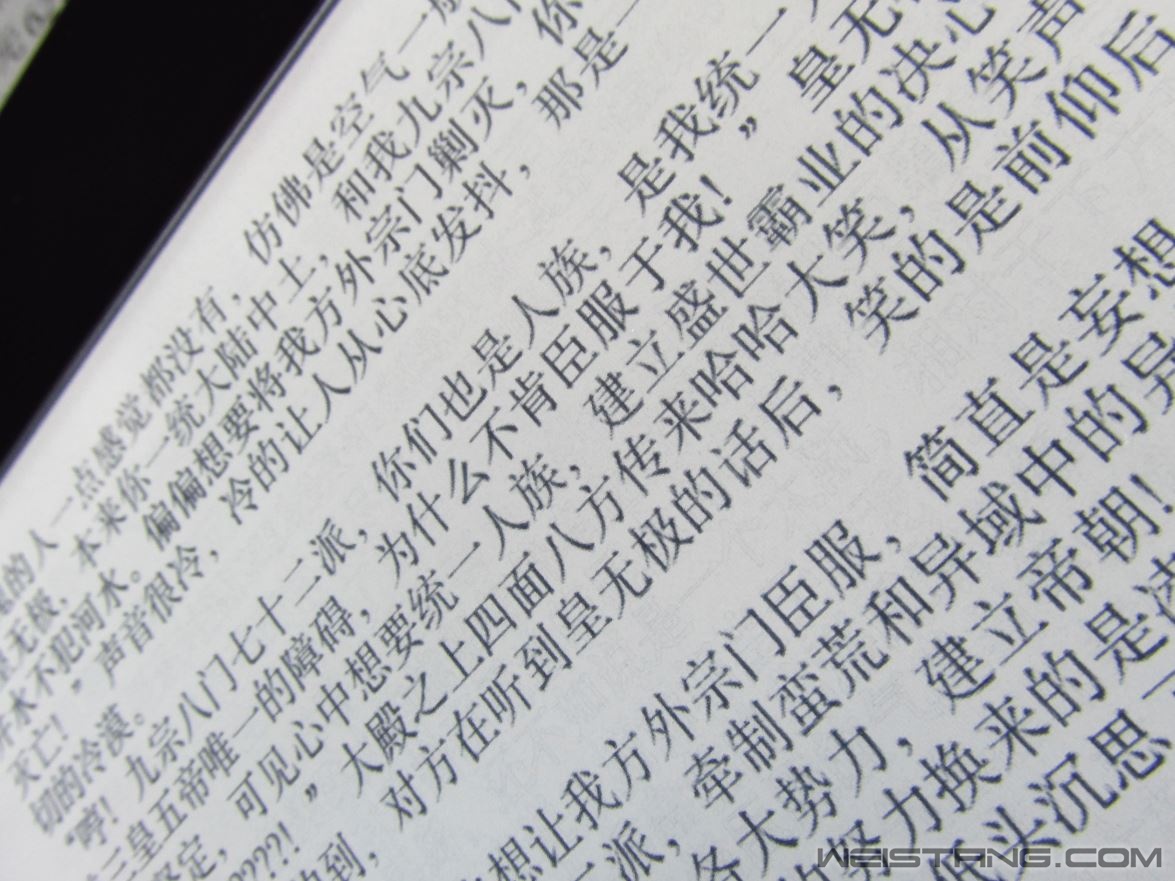 的人一点感觉都没有，仿佛是空气一般
无极，本来你一统大陆中土，和我九宗八门
井水不犯河水。偏偏想要将我方外宗门剿灭，你
灭亡！”声音很冷，冷的让人从心底发抖，那是一
切的冷漠。
“哼！九宗八门七十二派，你们也是人族，是我统一人
三皇五帝唯一的障碍，为什么不肯臣服于我！”皇无
坚定，可见心中想要统一人族，建立盛世霸业的决心
???!”大殿之上四面八方传来哈哈大笑，从笑声
到，对方在听到皇无极的话后，笑的是前仰后
想让我方外宗门臣服，简直是妄想
二派，牵制蛮荒和异域中的异
各大势力，建立帝朝！
的努力换来的是凄
低头沉思一
WEISTANG.COM